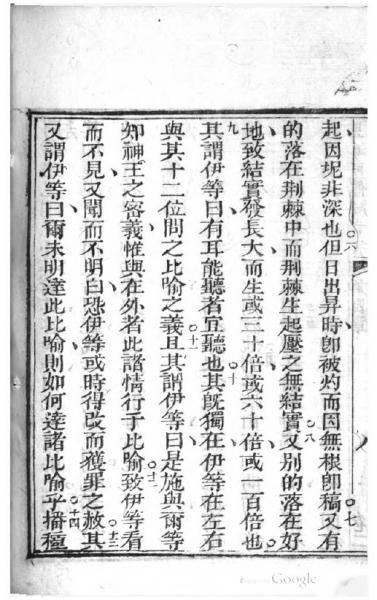 起因坭非深也但日出昇時卽被灼而因無根卽稿又有
的落在荆棘中而荆棘生起壓之無結實又別的落在好
地致結實發長大而生或三十倍或六十倍或一百倍也
其謂伊等曰有耳能聽者宜聽也其旣獨在伊等在左右
與其十二位問之比喻之義且其謂伊等曰是施與爾等
知神王之密義惟與在外者此諸情行于比喻致伊等看
而不見又聞而不明白恐伊等或時得改而獲罪之赦其
又謂伊等曰爾未明達此比喻則如何達諸比喻乎播種
○六
○七
○八
九
○十
○十一
○十二
○十三
○十四
Google